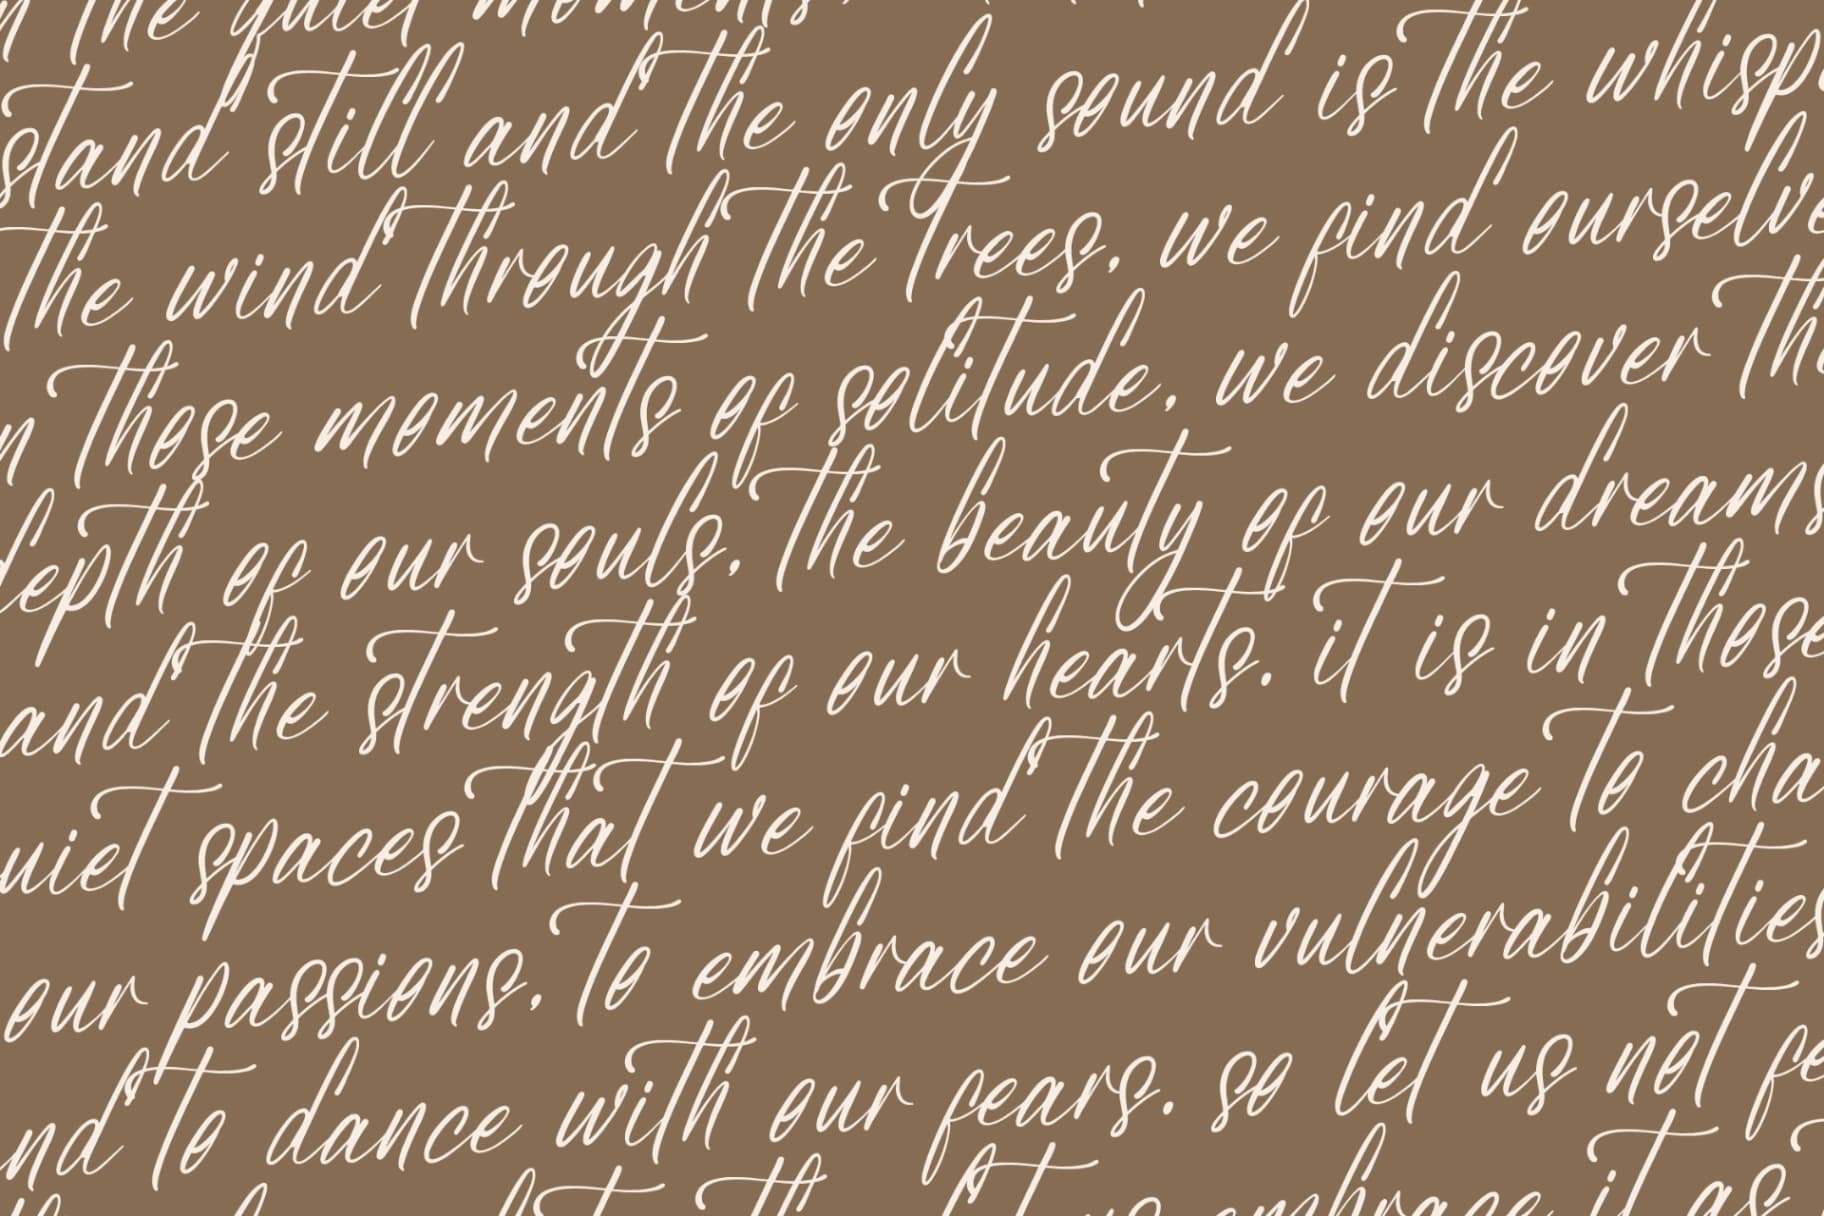 the quiet moments,
stand still and the only sound is the
the wind through the trees, we find
those moments of solitude, we discover
of our souls, the beauty of our dreams
and the strength of our hearts. it is in those
spaces that we find the courage to
our passions, to embrace our vulnerabilities
to dance with our fears. so let us not
us embrace it as